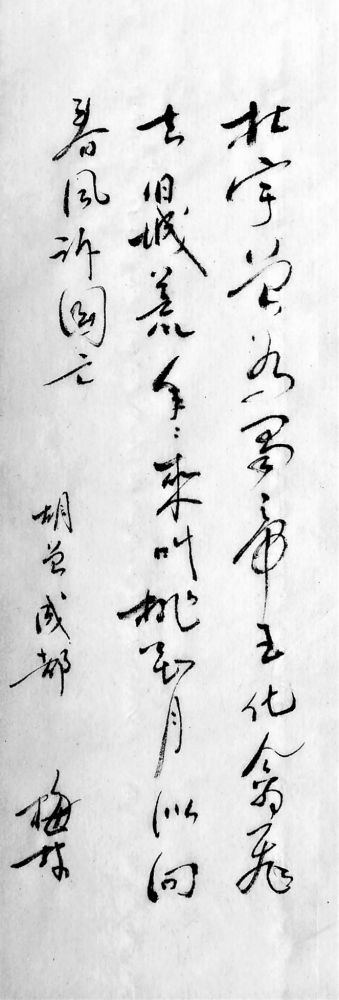 杜宇曾为蜀帝王化禽飛
去旧城荒年々来叫桃花月似向
春风诉國亡
胡曾成都